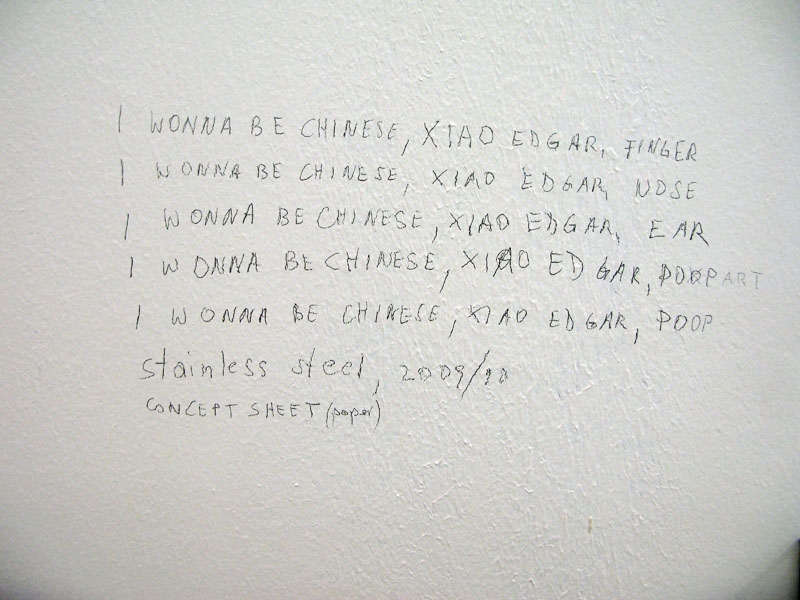 I WONNA BE CHINESE, XIAO EDGAR, FINGER
I WONNA BE CHINESE, XIAO EDGAR, NOSE
I WONNA BE CHINESE, XIAO EDGAR, EAR
I WONNA BE CHINESE, XIAO EDGAR, POOPART
I WONNA BE CHINESE, XIAO EDGAR, POOP
stainless steel, 2009/
CONCEPT SHEET (paper)